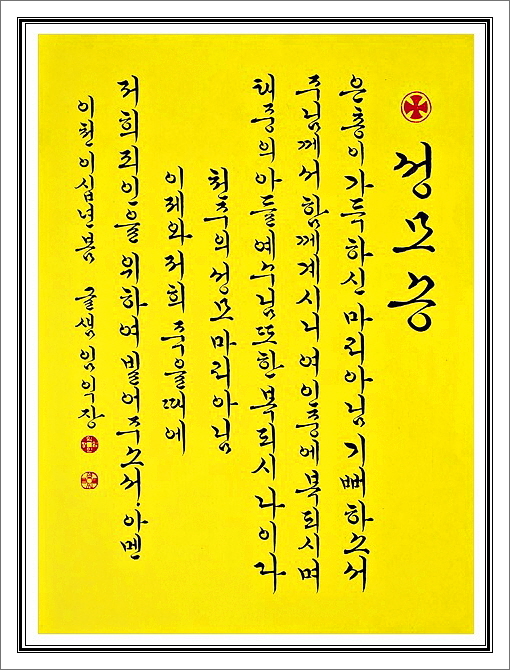 성모송
은총이 가득하신 마리아님 기뻐하소서
주님께서 함께 계시니 여인중에 복되시며
태중의 아들 예수님 또한 복되시나이다
천주의 성모 마리아님
이제와 저희 죽을때에
저희 죄인을 위하여 빌어주소서. 아멘
이천이십년봄 글샘 임익장